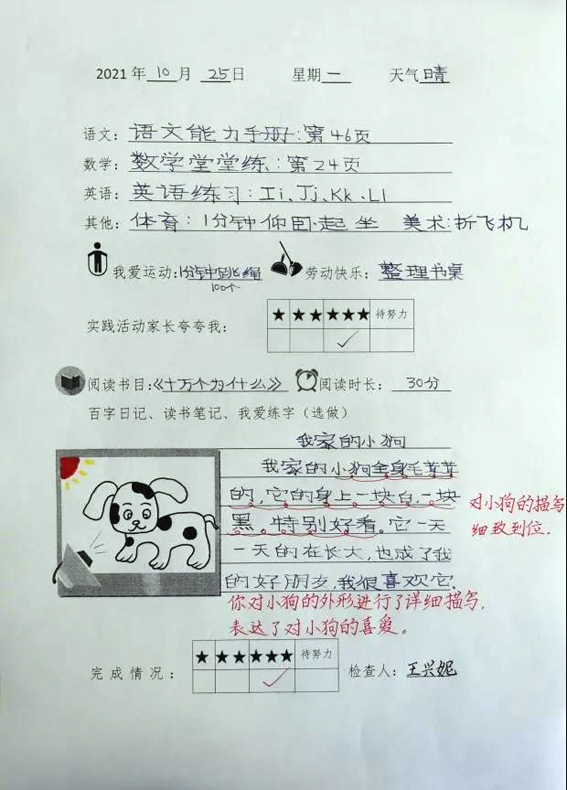 2021年 10 月 25 日 星期 一 天气 晴
语文：语文能力手册：第46页
数学：数学堂堂练：第24页
英语：英语练习：Ii、Jj、Kk、Ll
其他：体育：1分钟仰卧起坐 美术：折飞机
我爱运动：1分钟跳绳 劳动快乐：整理书桌
100个
★ ★★ ★★★ 待努力
实践活动家长夸夸我：
✓
阅读书目：《十万个为什么》 阅读时长：30分
百字日记、读书笔记、我爱练字（选做）
我家的小狗
我家的小狗全身毛茸茸
的，它的身上一块白，一块
黑。特别好看。它一天
一天的在长大，也成了我
的好朋友，我很喜欢它.
对小狗的描写
细致到位.
你对小狗的外形进行了详细描写，
表达了对小狗的喜爱。
★ ★★ ★★★ 待努力
完成情况： ✓ 检查人：王兴妮